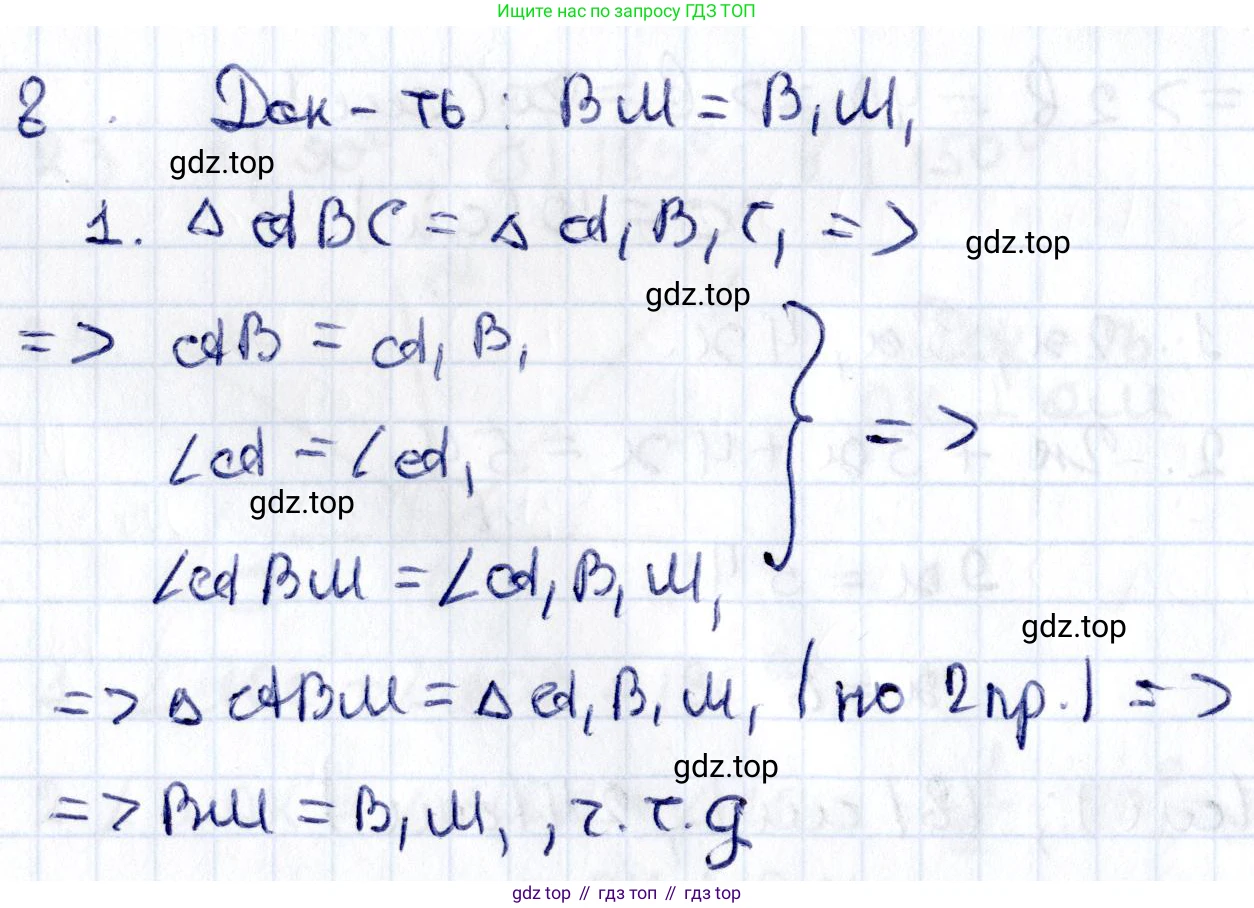 Ищите нас по запросу ГДЗ ТОП
8. Док-ть: BM = B₁M₁
gdz.top
1. △ABC = △A₁B₁C₁ =>
gdz.top
gdz.top
=> AB = A₁B₁
∠A = ∠A₁ } =>
gdz.top
∠ABM = ∠A₁B₁M₁
gdz.top
=> △ABM = △A₁B₁M₁ (по 2 пр.) =>
gdz.top
=> BM = B₁M₁, ч.т.д
gdz top // гдз топ // gdz top